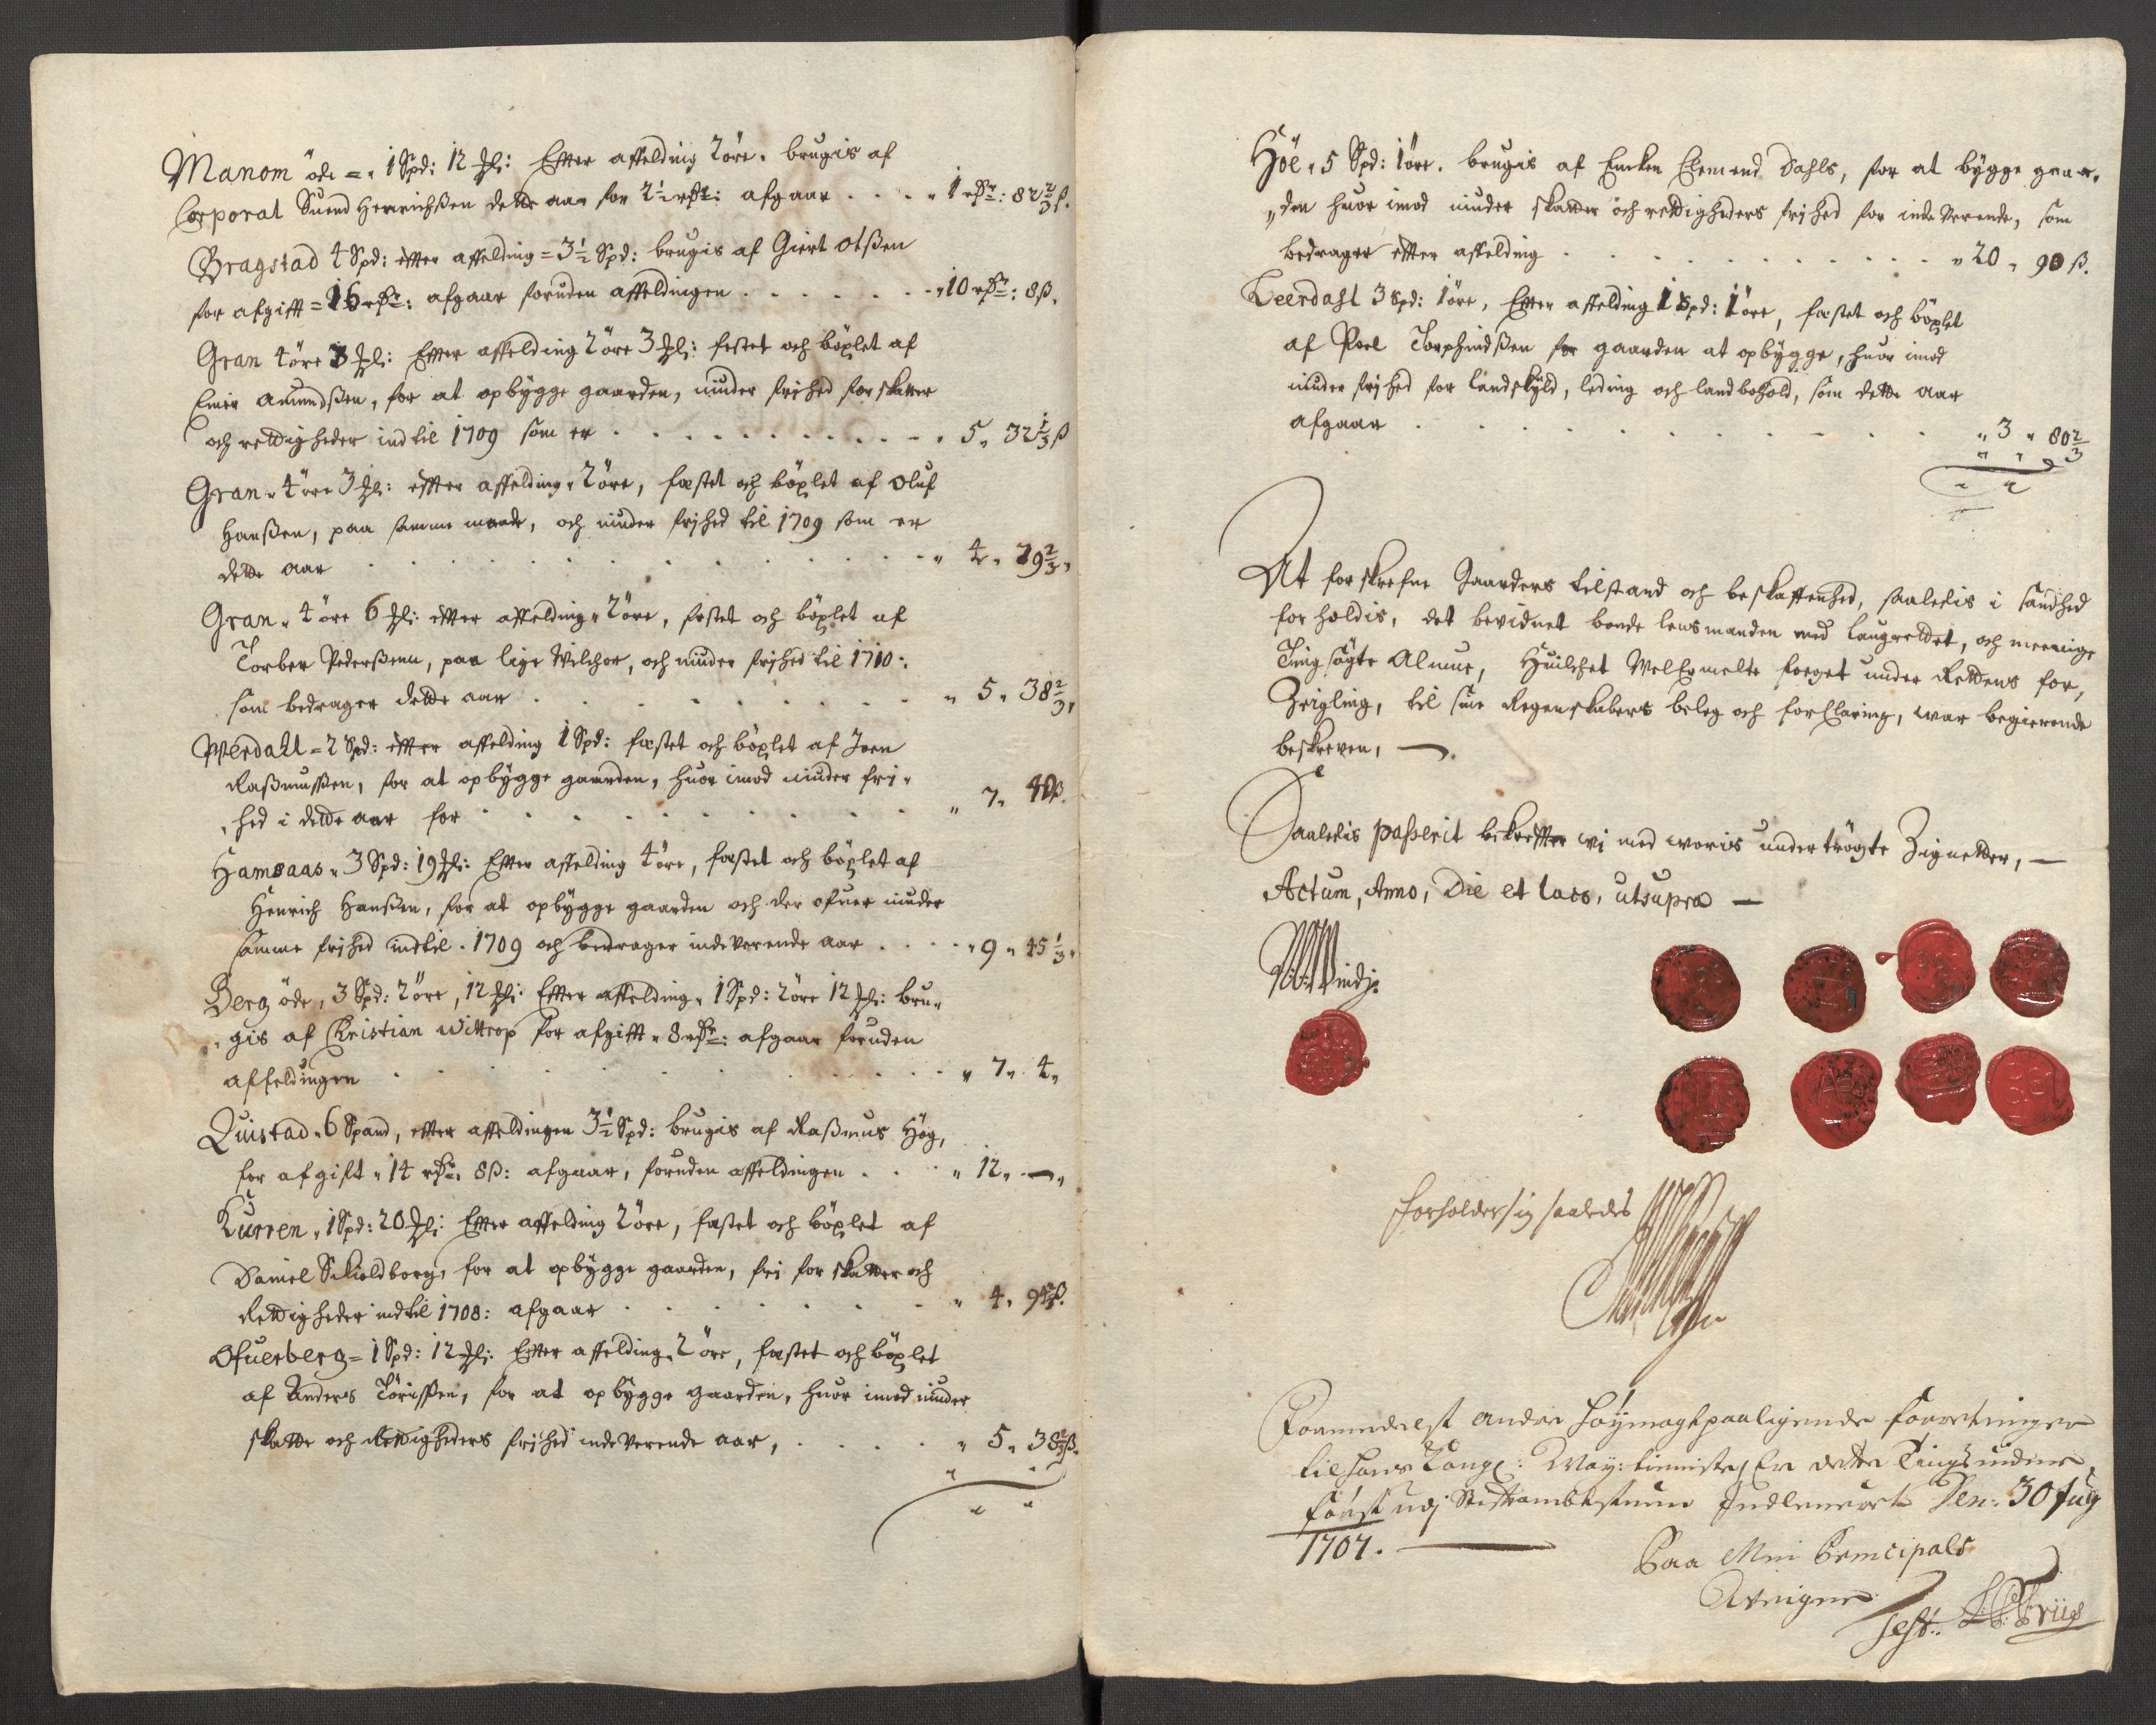 Manom öde = 1 Spd: 12 ℔: Efter affelding 2 öre. brugis af
Corporal Suend Henrichßen dette aar for 2½ rdr: afgaar . . . . 1 rdr: 82⅔ ß.
Bragstad 4 Spd: efter affelding = 3½ Spd: brugis af Giert Olßen
for afgift = 16 rdr: afgaar foruden affeldingen . . . . . . . 10 rdr: 8 ß.
Gran 4 öre 3 ℔: Efter affelding 2 öre 3 ℔: festet och böxlet af
Amundßen, for at opbygge gaarden, niuder frihed for skatter
och rettigheder indtil 1709 som er . . . . . . . . . . . 5 „ 32⅓ ß
Gran „ 4 öre 3 ℔: efter affelding „ 2 öre, fæstet och böxlet af Oluf
Hanßen, paa samme maade, och niuder frihed til 1709 som er
dette aar . . . . . . . . . . . . . „ 4 „ 29⅔ „
Gran „ 4 öre 6 ℔: efter affelding „ 2 öre, festet och böxlet af
Torber Pederßenn, paa lige Vilchor, och niuder frihed til 1710:
som bedrager dette aar . . . . . . . . „ 5 „ 38⅔ „
Werdall = 2 Spd: efter affelding 1 Spd: fæstet och böxlet af Joen
Raßmußen, for at opbygge gaarden, huor imod niuder fri„
„hed i dette aar for . . . . . . . . . „ 7 „ 40 ß.
Hamsaas „ 3 Spd: 19 ℔: Efter affelding 4 öre, fæstet och böxlet af
Henrich Hanßen, for at opbygge gaarden och der ofuer niuder
samme frihed indtil 1709 och bedrager indeverende aar . . . . „ 9 „ 45⅓ „
Berg öde, 3 Spd: 2 öre, 12 ℔: Efter affelding „ 1 Spd: 2 öre 12 ℔: bru„
„gis af Christian Wittrop for afgift „ 8 rdr: afgaar foruden
affeldingen . . . . . . . . . . . . . „ 7 „ 4 „
Quistad „ 6 Spand, efter affeldingen 3½ Spd: brugis af Raßmus Hög,
for afgift „ 14 rdr „ 8 ß: afgaar, foruden affeldingen . . . „ 12 „ — „
Kurren „ 1 Spd: 20 ℔: Efter affelding 2 öre, fæstet och böxlet af
Daniel Schioldborg, for at opbygge gaarden, fri for skatter och
Rettigheder indtil 1708: afgaar . . . . . . . . „ 4 „
Ofuerberg = 1 Spd: 12 ℔: Efter affelding „ 2 öre, fæstet och böxlet
af Anders Törißen, for at opbygge gaarden, huor imod niuder
skatte och Rettigheders frihed indeverende aar, . . . . . „ 5 „ 38⅔ ß.
Höe „ 5 Spd: 1 öre. brugis af Enken Dahls, for at bygge gaar„
„den huor imod niuder skatter och rettigheders frihed for indeverende, som
bedrager efter affelding . . . . . . . . . . . . „ 20 „ 90 ß.
Leerdahl 3 Spd: 1 öre, Efter affelding 1 Spd: 1 öre, fæstet och böxlet
af Poel Torphindßen for gaarden at opbygge, huor imod
niuder frihed for landskyld, leding och landbohold, som dette aar
afgaar . . . . . . . . . . „ 3 „ 80⅔
At forskrefne Gaarders tilstand och beskaffenhed, saaledis i sandhed
forholdis, det bevidnet bonde lensmanden med Laugrettet, och meenige
Tingsögte Almue, Huilchet Velermelte foeget under Rettens for„
Zeigling, til sine Regenskabers beleg och forklaring, war begierende
beskreven, —
Saaledis passerit bekrefter wi med woris undertrögte Zignetter, —
Actum, Anno, Die et loco, utsupra —
Windj
forholder sig saaledes
Formedelst andre höymagtpaaligende forretninger
til hans Kongl: May: tieniste, Er dette Tings vidne,
först udj Stiftambtstuen Indleveret Den: 30 Julj
1707. —
Paa Min Principals
Vegne
Test: Friis